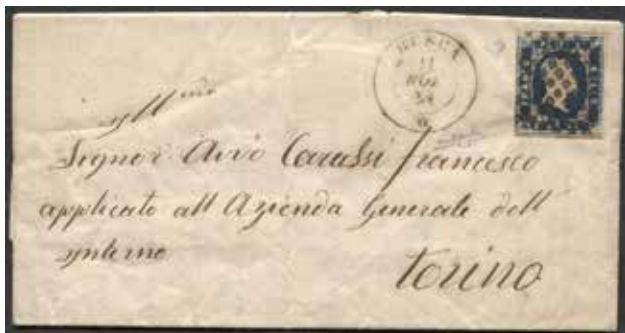 11
All'Ill.mo
Signor Avv.o Carassi Francesco
applicato all Azienda Generale dell
Interno
Torino